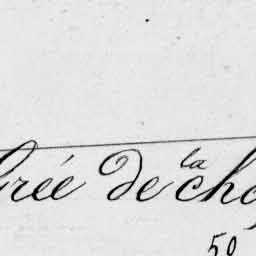 rée de la cho
50